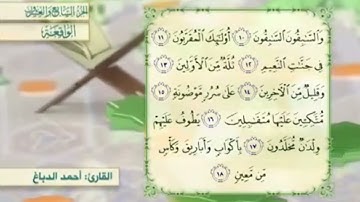 الجزء السابع والعشرون
الواقعة
وَالسَّٰبِقُونَ السَّٰبِقُونَ ١٠ أُوْلَٰٓئِكَ الْمُقَرَّبُونَ ١١
فِي جَنَّٰتِ النَّعِيمِ ١٢ ثُلَّةٌ مِّنَ الْأَوَّلِينَ ١٣
وَقَلِيلٌ مِّنَ الْأٓخِرِينَ ١٤ عَلَىٰ سُرُرٍ مَّوْضُونَةٍ ١٥
مُّتَّكِـِٔينَ عَلَيْهَا مُتَقَٰبِلِينَ ١٦ يَطُوفُ عَلَيْهِمْ
وِلْدَٰنٌ مُّخَلَّدُونَ ١٧ بِأَكْوَابٍ وَأَبَارِيقَ وَكَأْسٍ
مِّن مَّعِينٍ ١٨
القارئ: أحمد الدباغ